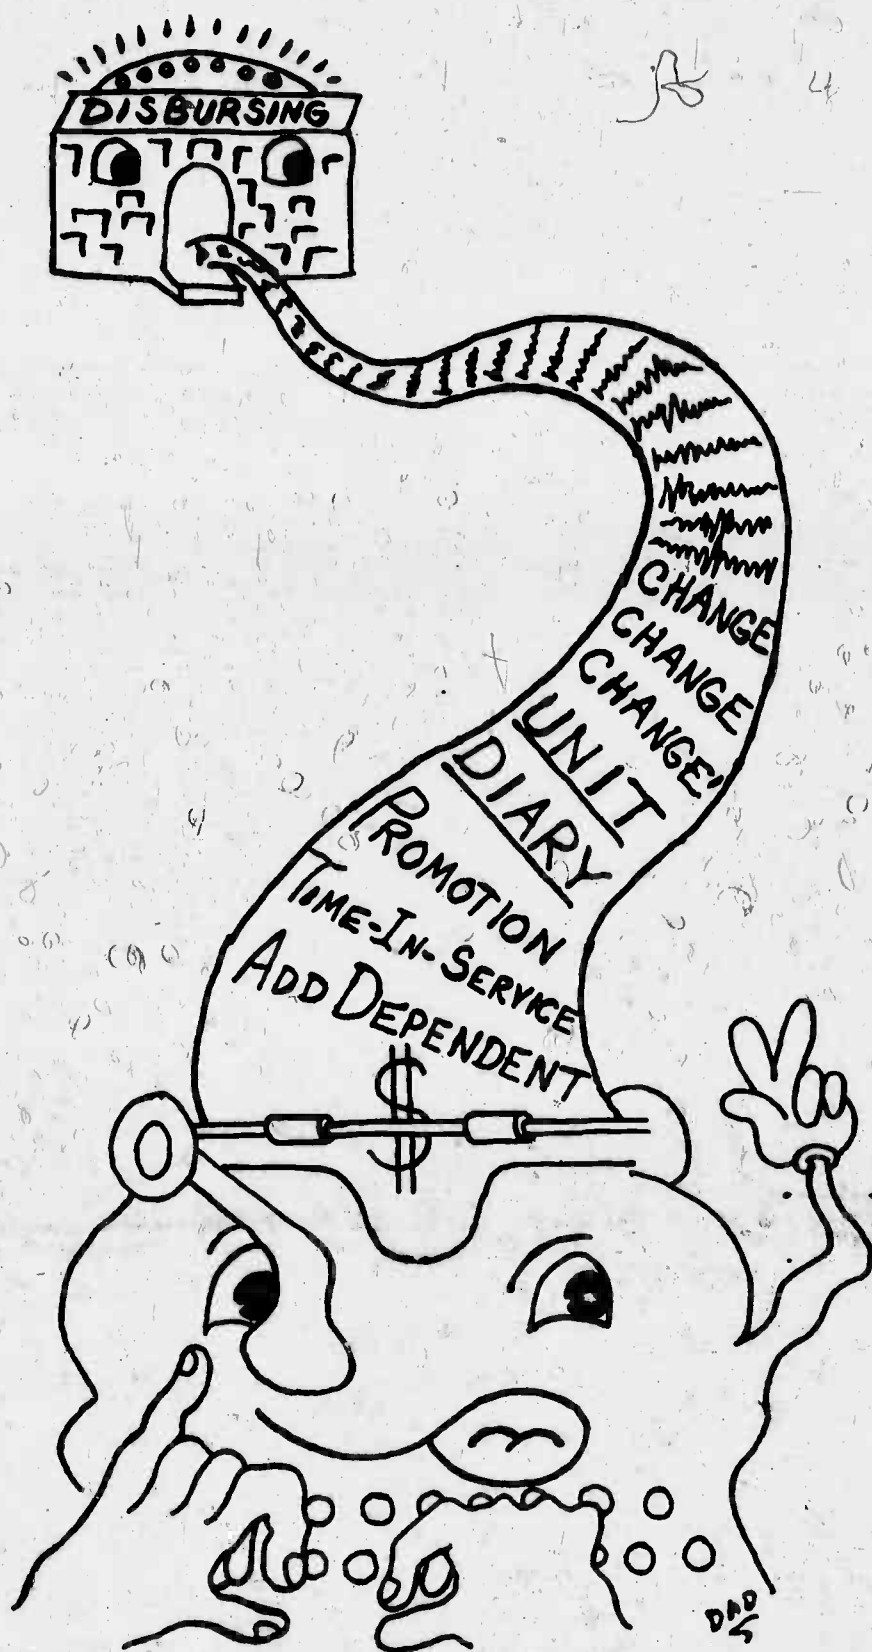 DISBURSING
4
CHANGE
CHANGE
CHANGE'
UNIT
DIARY
PROMOTION
TIME-IN-SERVICE
ADD DEPENDENT
$
DAD